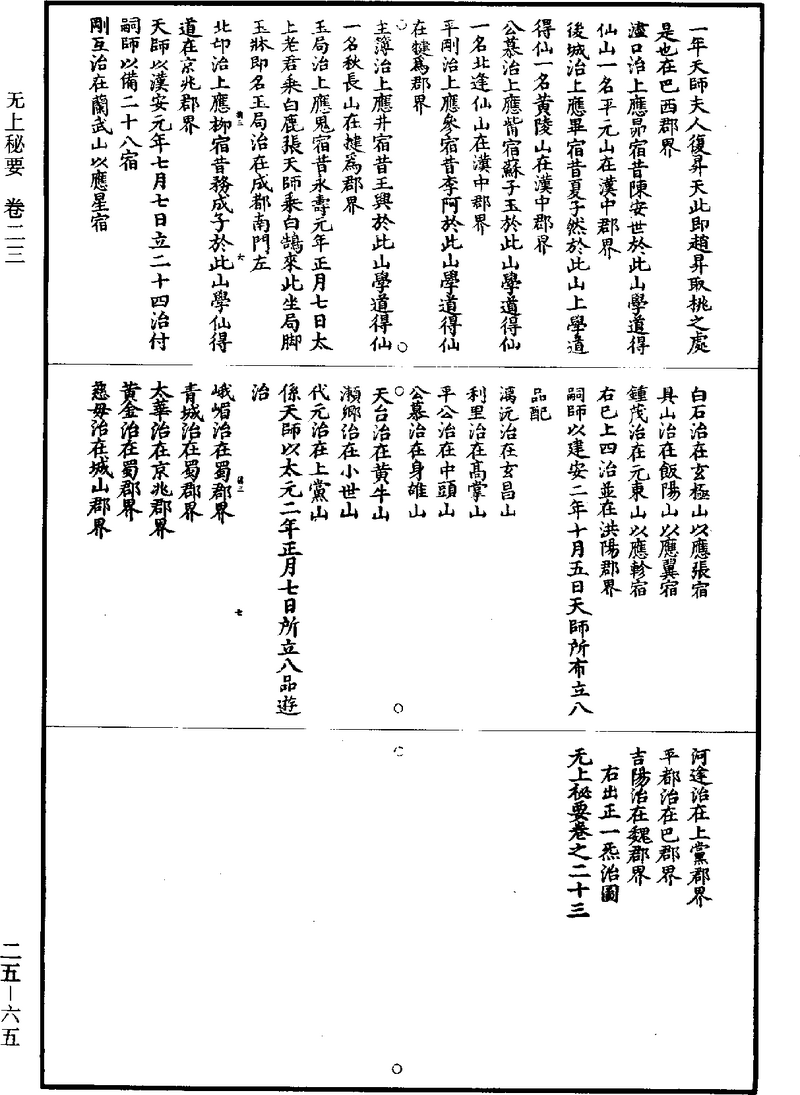 一年天師夫人復昇天此即趙昇取桃之處
是也在巴西郡界
濜口治上應昴宿昔陳安世於此山學道得
仙山一名平元山在漢中郡界
後城治上應畢宿昔夏子然於此山上學道
得仙一名黃陵山在漢中郡界
公慕治上應觜宿蘇子玉於此山學道得仙
一名北逢仙山在漢中郡界
平剛治上應參宿昔李阿於此山學道得仙
在犍為郡界
主簿治上應井宿昔王興於此山學道得仙
一名秋長山在犍為郡界
玉局治上應鬼宿昔永壽元年正月七日太
上老君乘白鹿張天師乘白鵠來此坐局脚
玉牀即名玉局治在成都南門左
北邙治上應柳宿昔務成子於此山學仙得
道在京兆郡界
天師以漢安元年七月七日立二十四治付
嗣師以備二十八宿
剛互治在蘭武山以應星宿
白石治在玄極山以應張宿
具山治在飯陽山以應翼宿
鍾茂治在元東山以應軫宿
右巳上四治並在洪陽郡界
嗣師以建安二年十月五日天師所布立八
品配
漓沅治在玄昌山
利里治在高掌山
平公治在中頭山
公慕治在身雄山
天台治在黃牛山
瀨鄉治在小世山
代元治在上黨山
係天師以太元二年正月七日所立八品遊
治
峨嵋治在蜀郡界
青城治在蜀郡界
太華治在京兆郡界
黃金治在蜀郡界
慈母治在城山郡界
河逢治在上黨郡界
平都治在巴郡界
吉陽治在魏郡界
右出正一炁治圖
无上祕要卷之二十三
无上秘要 卷二三
二五—六五